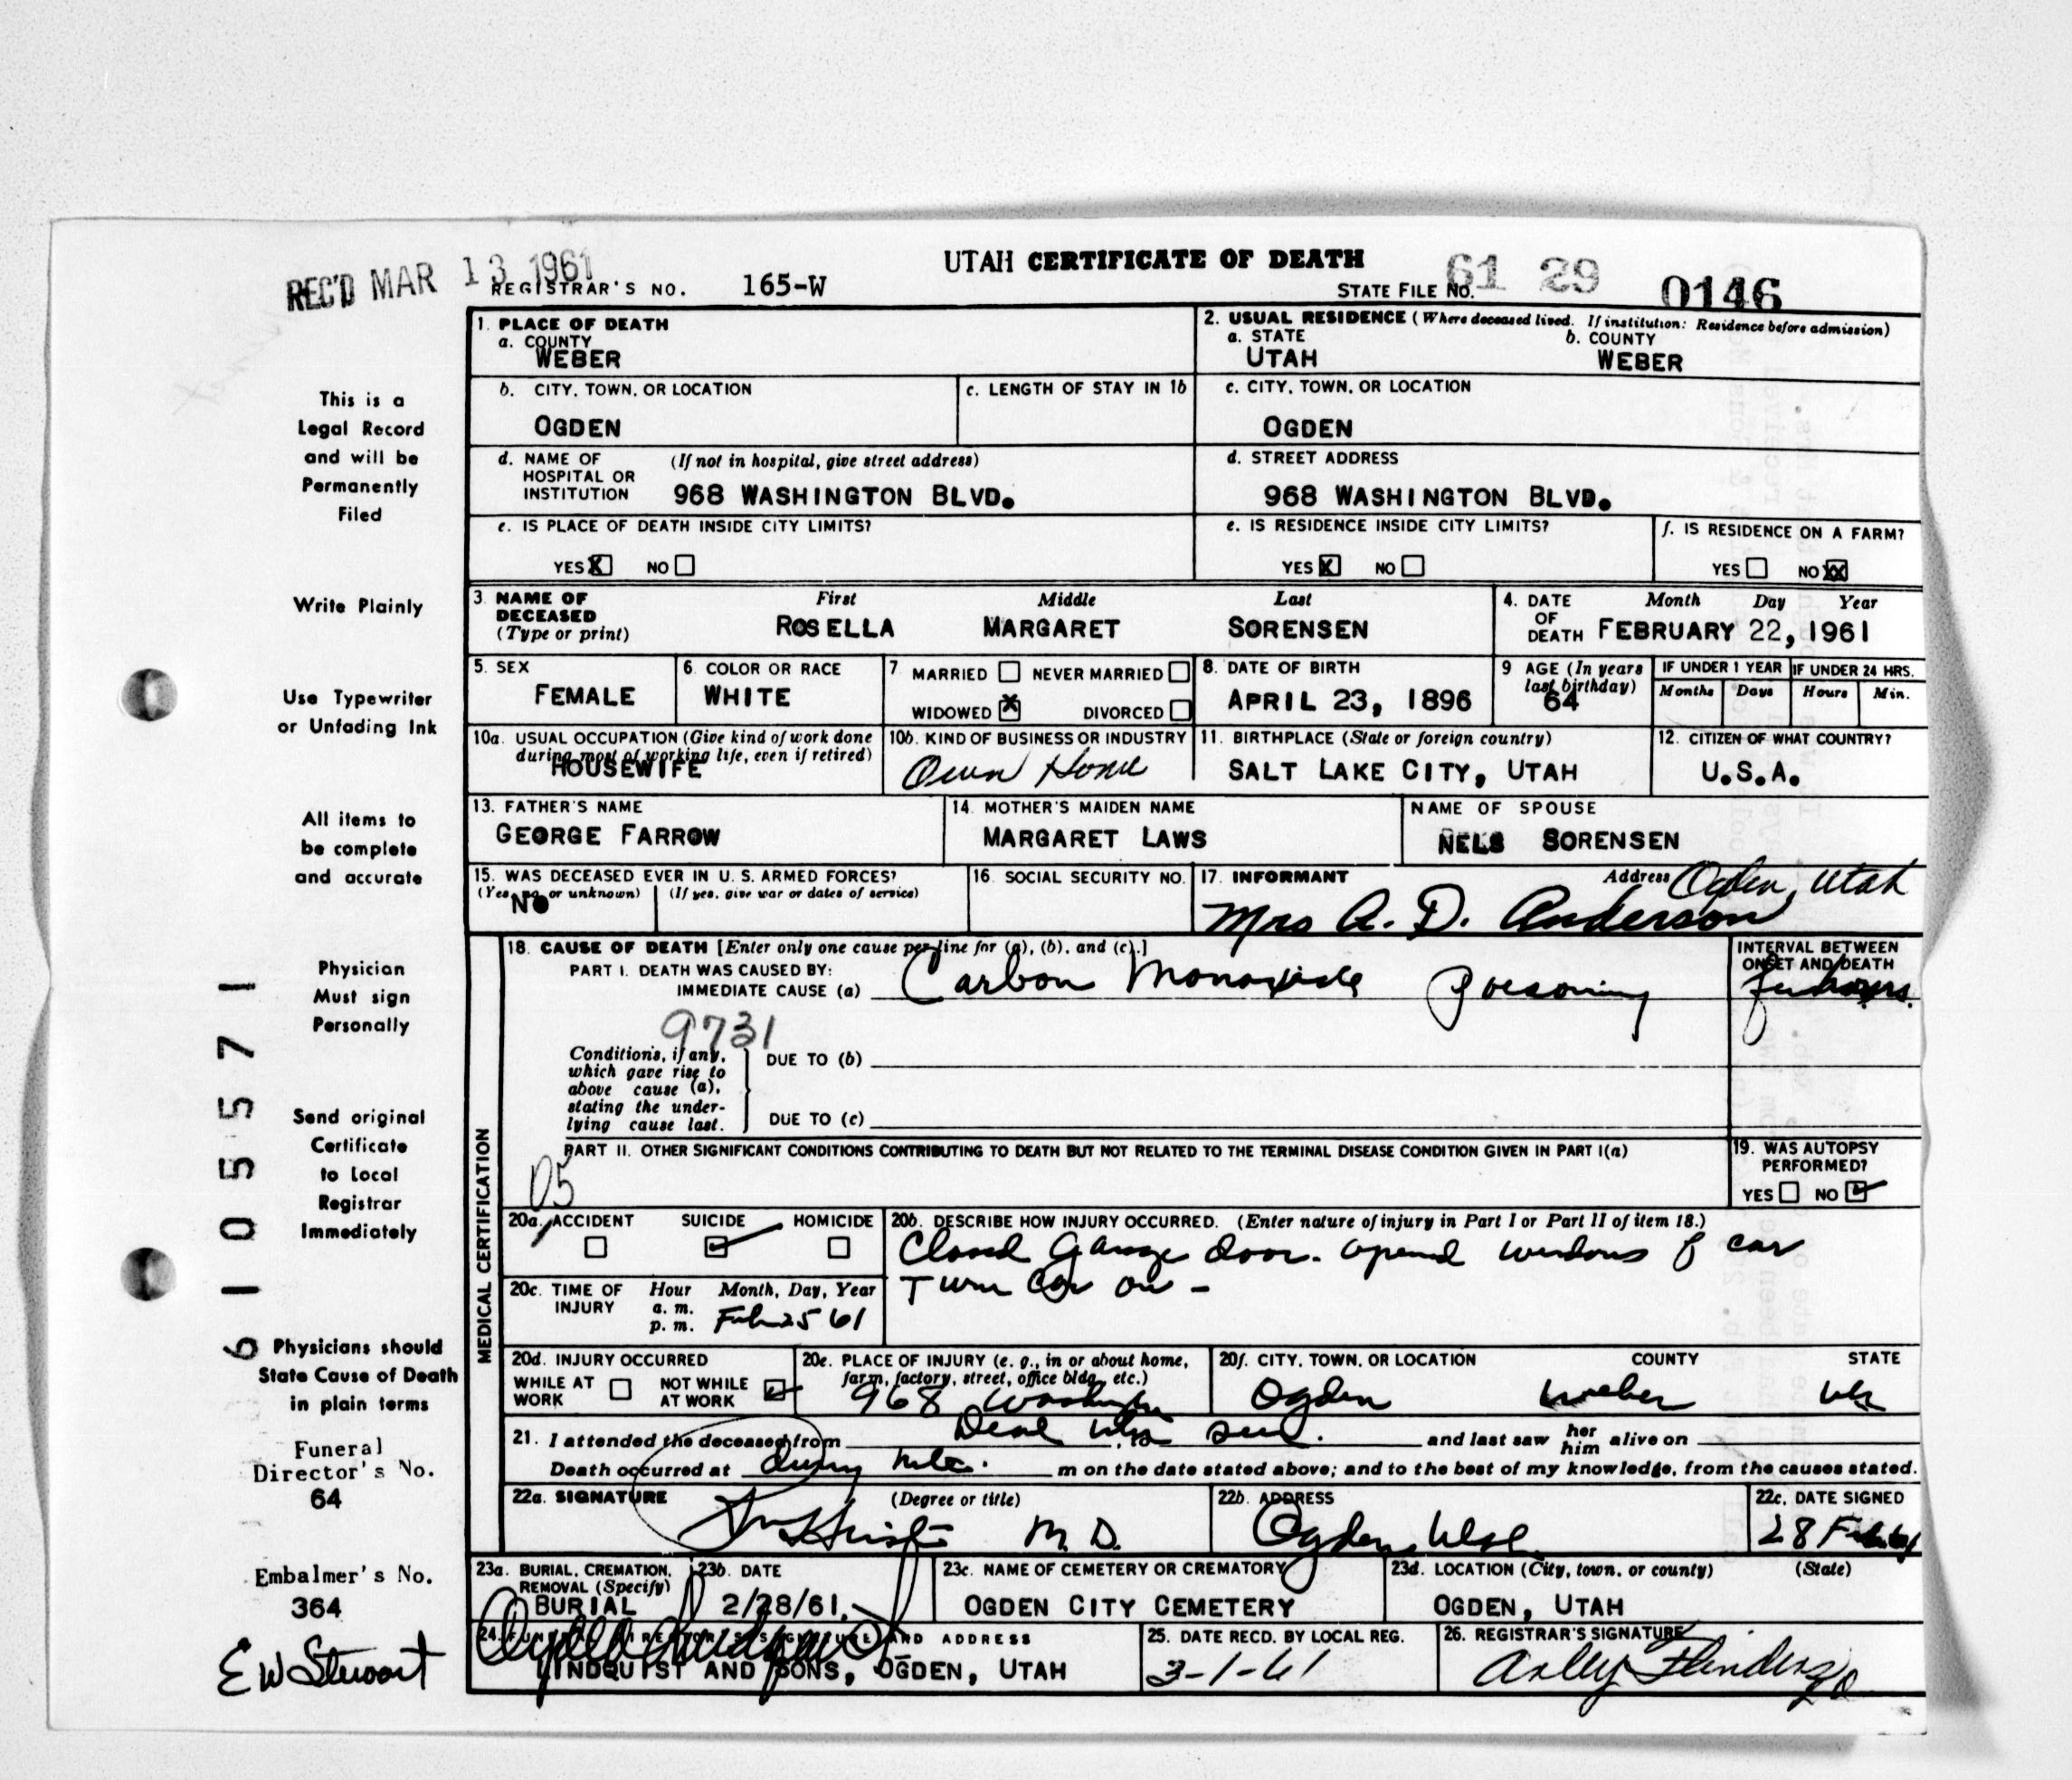 REC'D MAR 13 1961
UTAH CERTIFICATE OF DEATH
REGISTRAR'S NO. 165-W
STATE FILE NO. 61 29 0146
1. PLACE OF DEATH
a. COUNTY
WEBER
2. USUAL RESIDENCE (Where deceased lived. If institution: Residence before admission)
a. STATE b. COUNTY
UTAH WEBER
b. CITY, TOWN, OR LOCATION
OGDEN
c. LENGTH OF STAY IN 1b
c. CITY, TOWN, OR LOCATION
OGDEN
d. NAME OF HOSPITAL OR INSTITUTION (If not in hospital, give street address)
968 WASHINGTON BLVD.
d. STREET ADDRESS
968 WASHINGTON BLVD.
e. IS PLACE OF DEATH INSIDE CITY LIMITS?
YES X NO
e. IS RESIDENCE INSIDE CITY LIMITS?
YES X NO
f. IS RESIDENCE ON A FARM?
YES NO XX
3. NAME OF DECEASED (Type or print)
First Middle Last
ROSELLA MARGARET SORENSEN
4. DATE OF DEATH
Month Day Year
FEBRUARY 22, 1961
5. SEX
FEMALE
6. COLOR OR RACE
WHITE
7 MARRIED NEVER MARRIED
WIDOWED X DIVORCED
8. DATE OF BIRTH
APRIL 23, 1896
9 AGE (In years last birthday)
64
IF UNDER 1 YEAR
Months Days
IF UNDER 24 HRS.
Hours Min.
10a. USUAL OCCUPATION (Give kind of work done during most of working life, even if retired)
HOUSEWIFE
10b. KIND OF BUSINESS OR INDUSTRY
Own Home
11. BIRTHPLACE (State or foreign country)
SALT LAKE CITY, UTAH
12. CITIZEN OF WHAT COUNTRY?
U.S.A.
13. FATHER'S NAME
GEORGE FARROW
14. MOTHER'S MAIDEN NAME
MARGARET LAWS
NAME OF SPOUSE
NELS SORENSEN
15. WAS DECEASED EVER IN U. S. ARMED FORCES?
(Yes, no, or unknown) (If yes, give war or dates of service)
NO
16. SOCIAL SECURITY NO.
17. INFORMANT Address
Ogden, Utah
Mrs A. D. Anderson
MEDICAL CERTIFICATION
18. CAUSE OF DEATH [Enter only one cause per line for (a), (b), and (c).]
PART I. DEATH WAS CAUSED BY:
IMMEDIATE CAUSE (a) Carbon Monoxide Poisoning
INTERVAL BETWEEN ONSET AND DEATH
9731
Conditions, if any, which gave rise to above cause (a), stating the underlying cause last.
DUE TO (b)
DUE TO (c)
PART II. OTHER SIGNIFICANT CONDITIONS CONTRIBUTING TO DEATH BUT NOT RELATED TO THE TERMINAL DISEASE CONDITION GIVEN IN PART I(a)
05
19. WAS AUTOPSY PERFORMED?
YES NO
20a. ACCIDENT SUICIDE HOMICIDE
20b. DESCRIBE HOW INJURY OCCURRED. (Enter nature of injury in Part I or Part II of item 18.)
Closed Garage door. opened windows of car
Turn Car on -
20c. TIME OF INJURY
Hour Month, Day, Year
a. m.
p. m.
Feb 25 61
20d. INJURY OCCURRED
WHILE AT WORK NOT WHILE AT WORK
20e. PLACE OF INJURY (e. g., in or about home, farm, factory, street, office bldg., etc.)
968 Washington
20f. CITY, TOWN, OR LOCATION COUNTY STATE
Ogden Weber Utah
21. I attended the deceased from Dead when seen. and last saw her him alive on
Death occurred at during nite. m on the date stated above; and to the best of my knowledge, from the causes stated.
22a. SIGNATURE (Degree or title)
M. D.
22b. ADDRESS
Ogden, Utah
22c. DATE SIGNED
28 Feb 61
23a. BURIAL, CREMATION, REMOVAL (Specify)
BURIAL
23b. DATE
2/28/61.
23c. NAME OF CEMETERY OR CREMATORY
OGDEN CITY CEMETERY
23d. LOCATION (City, town, or county) (State)
OGDEN, UTAH
24. FUNERAL DIRECTOR'S SIGNATURE AND ADDRESS
LINDQUIST AND SONS, OGDEN, UTAH
25. DATE RECD. BY LOCAL REG.
3-1-61
26. REGISTRAR'S SIGNATURE
Arley Flinders
This is a
Legal Record
and will be
Permanently
Filed
Write Plainly
Use Typewriter
or Unfading Ink
All items to
be complete
and accurate
Physician
Must sign
Personally
Send original
Certificate
to Local
Registrar
Immediately
Physicians should
State Cause of Death
in plain terms
Funeral
Director's No.
64
Embalmer's No.
364
E W Stewart
6 1 0 5 5 7 1